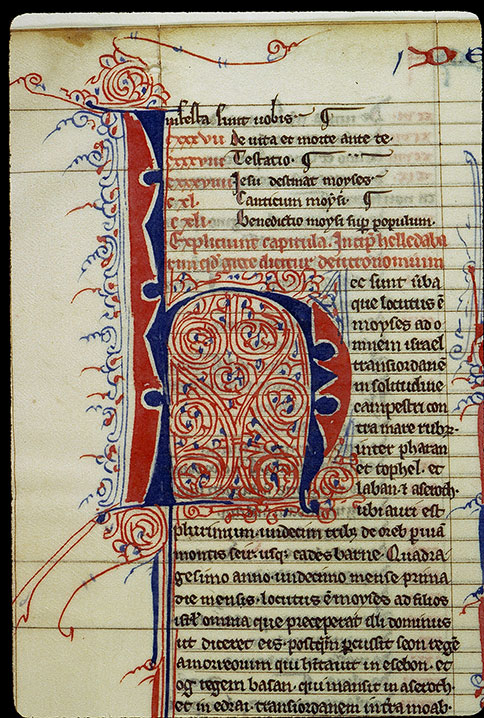 nifesta sunt vobis. ¶
cxxxvii De vita et morte ante te.
cxxxviii Testatio. ¶
cxxxviiii Jesu destinat moyses.
cxl. Canticum moysi. ¶
cxli. Benedictio moysi sup populum.
Expliciunt capitula. Incip helledaba
rim qd grece dicitur deuteronomium
Hec sunt vba
que locutus e
moyses ad o
mnem israel
transiordane
in solitudine
campestri con
tra mare rubr.
inter pharan
et tophel. et
laban. et aseroch.
ubi auri est
plurimum. undecim dieb; de oreb p uia
montis seir. usq; cades barne. Quadra
gesimo anno. undecimo mense. prima
die mensis. locutus e moyses ad filios
isrl omnia que preceperat illi dominus
ut diceret eis. postqm pcussit seon rege
amorreorum qui hitauit in esebon. et
og regem basan. qui mansit in aseroch.
et in edrai. transiordanem in tra moab.